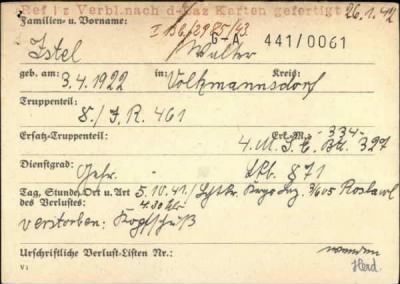 Ref | z Verbl.nach d-Laz Karten gefertigt 26.1.42
Familien- u. Vorname: I 136/2985/43
Istel Walter G-A 441/0061
geb. am: 3.4.1922 in: Volkmannsdorf Kreis:
Truppenteil:
8./I.R. 461
Erk.-M.: -334-
Ersatz-Truppenteil: 4.M.G.E. Btl. 327
Dienstgrad: Gefr. Stkb. 871
Tag, Stunde, Ort u. Art 5.10.41/ 3/605 Roslawl
des Verlustes: 4.30 Uhr
verstorben: Kopfschuß
Urschriftliche Verlust-Listen Nr.:
V: